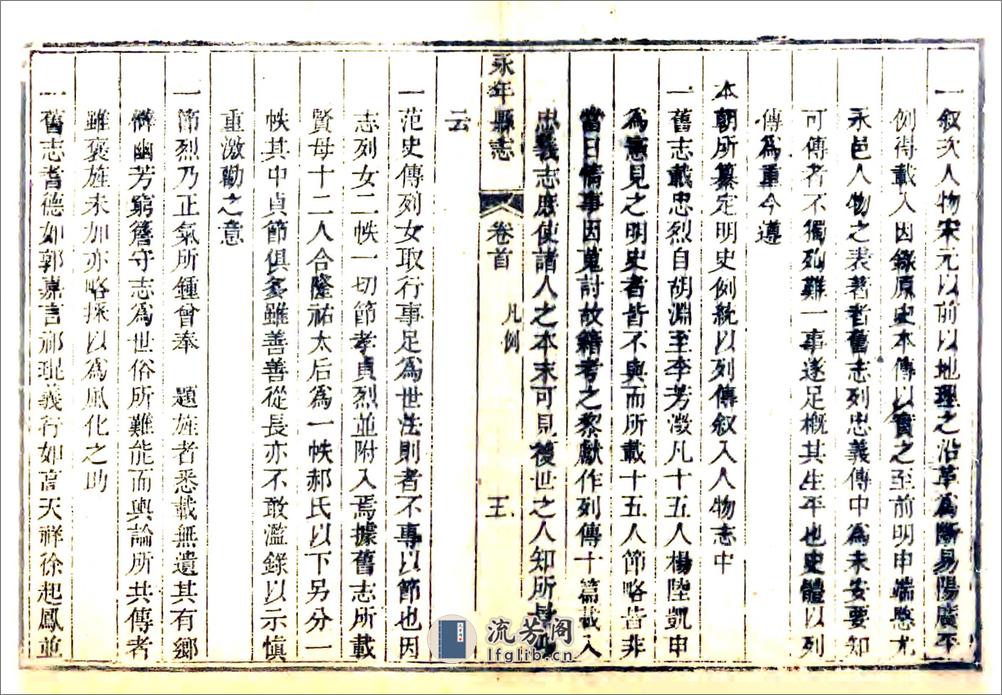 一叙次人物宋元以前以地理之沿革為斷易陽廣平
例得載入因錄原史本傳以實之至前明申端愍尤
永邑人物之表著者舊志列忠義傳中為未安要知
可傳者不獨死難一事遂足概其生平也史體以列
傳為重今遵
本朝所纂定明史例統以列傳叙入人物志中
一舊志載忠烈自胡淵至李芳澂凡十五人楊陞凱申
為憲見之明史者皆不與而所載十五人節略皆非
當日情事因蒐討故籍考之黎獻作列傳十篇載入
忠義志庶使諸人之本末可見後世之人知所
云
永年縣志
卷首
凡例
一范史傳列女取行事足為世法則者不專以節也因
志列女二帙一切節孝貞烈並附入焉據舊志所載
賢母十二人合隆祐太后為一帙郝氏以下另分一
帙其中貞節俱多雖善善從長亦不敢濫錄以示慎
重激勸之意
一節烈乃正氣所鍾曾奉 題旌者悉載無遺其有鄉
僻幽芳窮簷守志為世俗所難能而輿論所共傳者
雖褒旌未加亦略採以為風化之助
一舊志耆德如郭嘉言祁琨義行如 天祥徐起鳳並
流芳阁
lfglib.cn